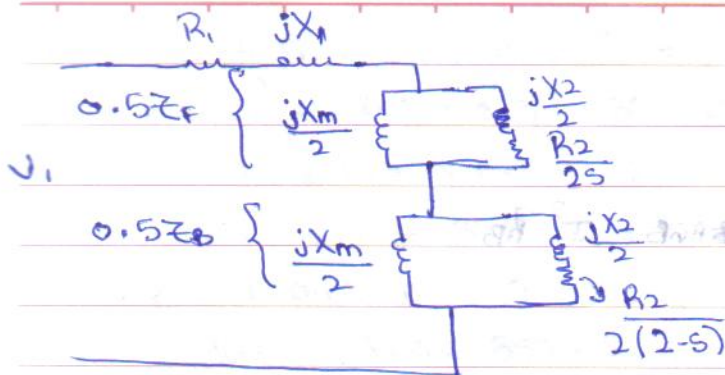 R₁ jX₁
0.5Z_F { jXm/2 jX2/2
R2/2S
V₁
0.5Z_B { jXm/2 jX2/2
R2/2(2-S)